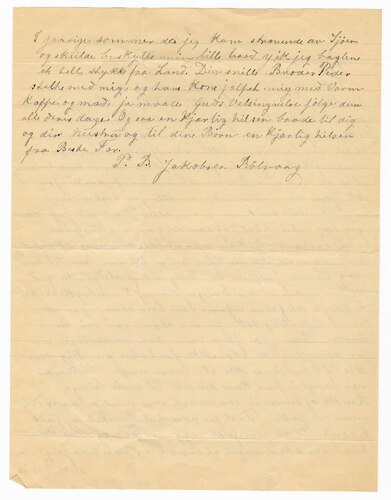 I forrige sommer da jeg kom strævende av Sjøen
og skulde beskytte min lille baad gik jeg baglens
et lite stykke fra Land. Din snille Broder Peder
med mig, og hans Kone hjalp mig med Varm
Kaffe og mad, ja maatte Guds Velsignelse følge dem
alle deres dage. Og saa en Kjærlig hilsen baade til dig
og din hustru og til dine Børn en Kjærlig hilsen
fra Beste Far.
P. B. Jakobsen Rölvaag